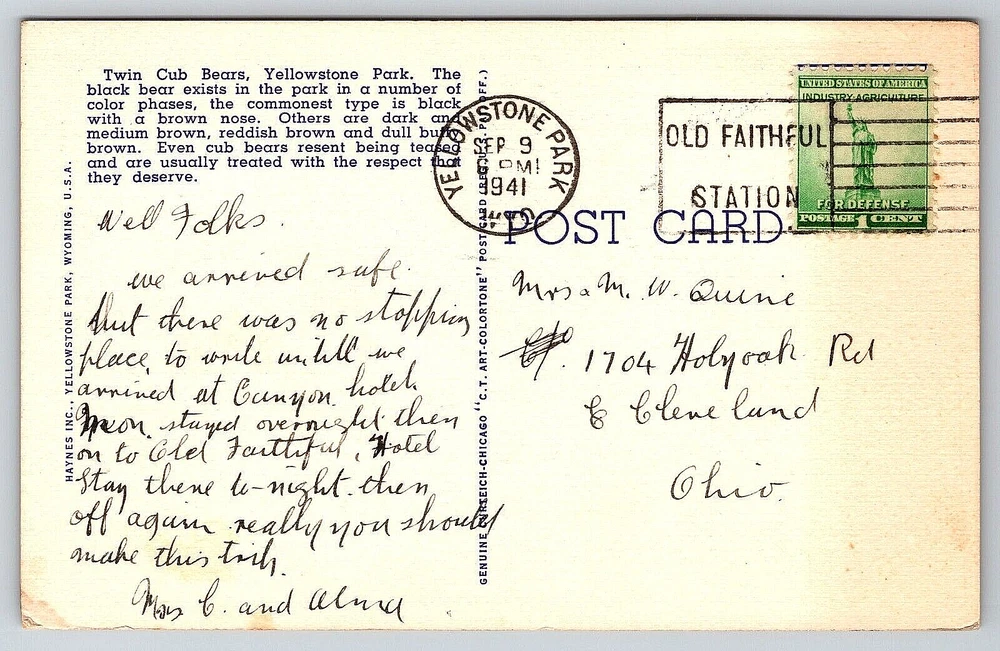 Twin Cub Bears, Yellowstone Park. The
black bear exists in the park in a number of
color phases, the commonest type is black
with a brown nose. Others are dark and
medium brown, reddish brown and dull buff
brown. Even cub bears resent being teased
and are usually treated with the respect that
they deserve.
HAYNES INC., YELLOWSTONE PARK, WYOMING, U.S.A.
Well Folks.
we arrived safe.
but there was no stopping
place, to write untill we
arrived at Canyon hotel.
stayed overnight then
on to Old Faithful, Hotel
Stay there to-night. then
off again really you should
make this trip.
Mrs C. and Alma
GENUINE CURTEICH-CHICAGO "C.T. ART-COLORTONE" POST CARD (REG. U.S. PAT. OFF.)
YELLOWSTONE PARK
SEP 9
6 PM
1941
WYO.
OLD FAITHFUL
STATION
UNITED STATES OF AMERICA
INDUSTRY·AGRICULTURE
FOR DEFENSE
POSTAGE 1 CENT
POST CARD
Mrs. M. W. Quine
1704 Holyoak Rd
E Cleveland
Ohio.